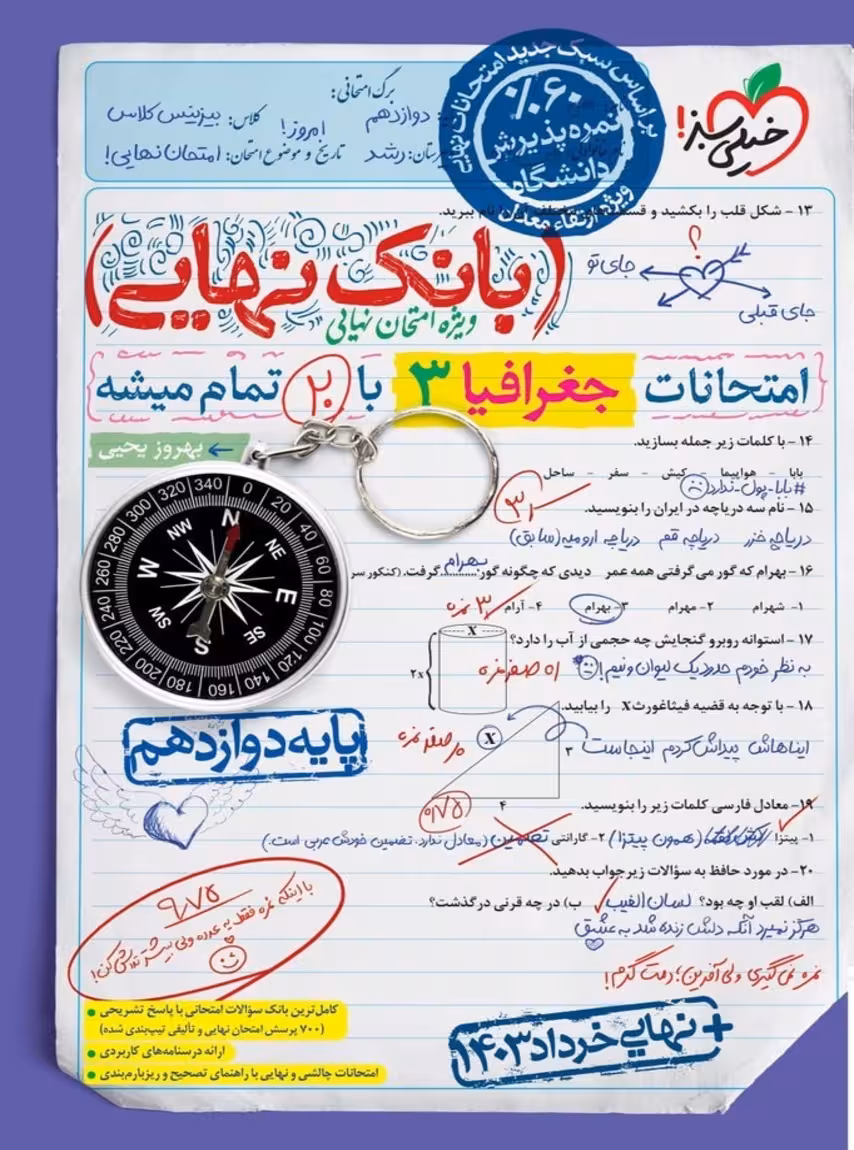 خیلی سبز!
بر اساس سبک جدید امتحانات نهایی
٪۶۰
نمره پذیرش
دانشگاه
ویژه ارتقاء معدل
برگ امتحانی:
دوازدهم
کلاس: بیزینس کلاس
رشد
تاریخ و موضوع امتحان: امروز! امتحان نهایی!
۱۳ - شکل قلب را بکشید و نام ببرید.
؟
جای تو
جای قبلی
(بانک نهایی)
ویژه امتحان نهایی
امتحانات جغرافیا ۳ با ۲۰ تمام میشه
بهروز یحیی
۱۴ - با کلمات زیر جمله بسازید.
بابا - هواپیما - کیش - سفر - ساحل
#بابا-پول-ندارد
۱۵ - نام سه دریاچه در ایران را بنویسید.
دریاچه خزر دریاچه قم دریاچه ارومیه (سابق)
۱۶ - بهرام که گور می‌گرفتی همه عمر دیدی که چگونه گور بهرام گرفت. (کنکور سر
۱- شهرام ۲- مهرام ۳- بهرام ۴- آرام
۳ نمره
۱۷ - استوانه روبرو گنجایش چه حجمی از آب را دارد؟
X
۲x
به نظر خودم حدود یک لیوان و نیم!
۱۸ - با توجه به قضیه فیثاغورث X را بیابید.
ایناهاش پیداش کردم اینجاست
X
۳
۴
صفر نمره
۰/۷۵
۱۹ - معادل فارسی کلمات زیر را بنویسید.
۱- پیتزا (همون پیتزا) ۲- گارانتی تضمین (معادل ندارد. تضمین خودش عربی است.)
۲۰ - در مورد حافظ به سؤالات زیر جواب بدهید.
الف) لقب او چه بود؟ لسان الغیب ب) در چه قرنی درگذشت؟
هرگز نمیرد آنکه دلش زنده شد به عشق
نمره نمی‌گیری ولی آفرین؛ دمت گرم!
۹/۷۵
با اینکه نمره فقط یه عدده ولی بیشتر تلاش کن!
پایه دوازدهم
کامل‌ترین بانک سؤالات امتحانی با پاسخ تشریحی
(۷۰۰ پرسش امتحان نهایی و تألیفی تیپ‌بندی شده)
ارائه درسنامه‌های کاربردی
امتحانات چالشی و نهایی با راهنمای تصحیح و ریزبارم‌بندی
+ نهایی خرداد ۱۴۰۳
0 20 40 60 80 100 120 140 160 180 200 220 240 260 280 300 320 340
N NE E SE S SW W NW